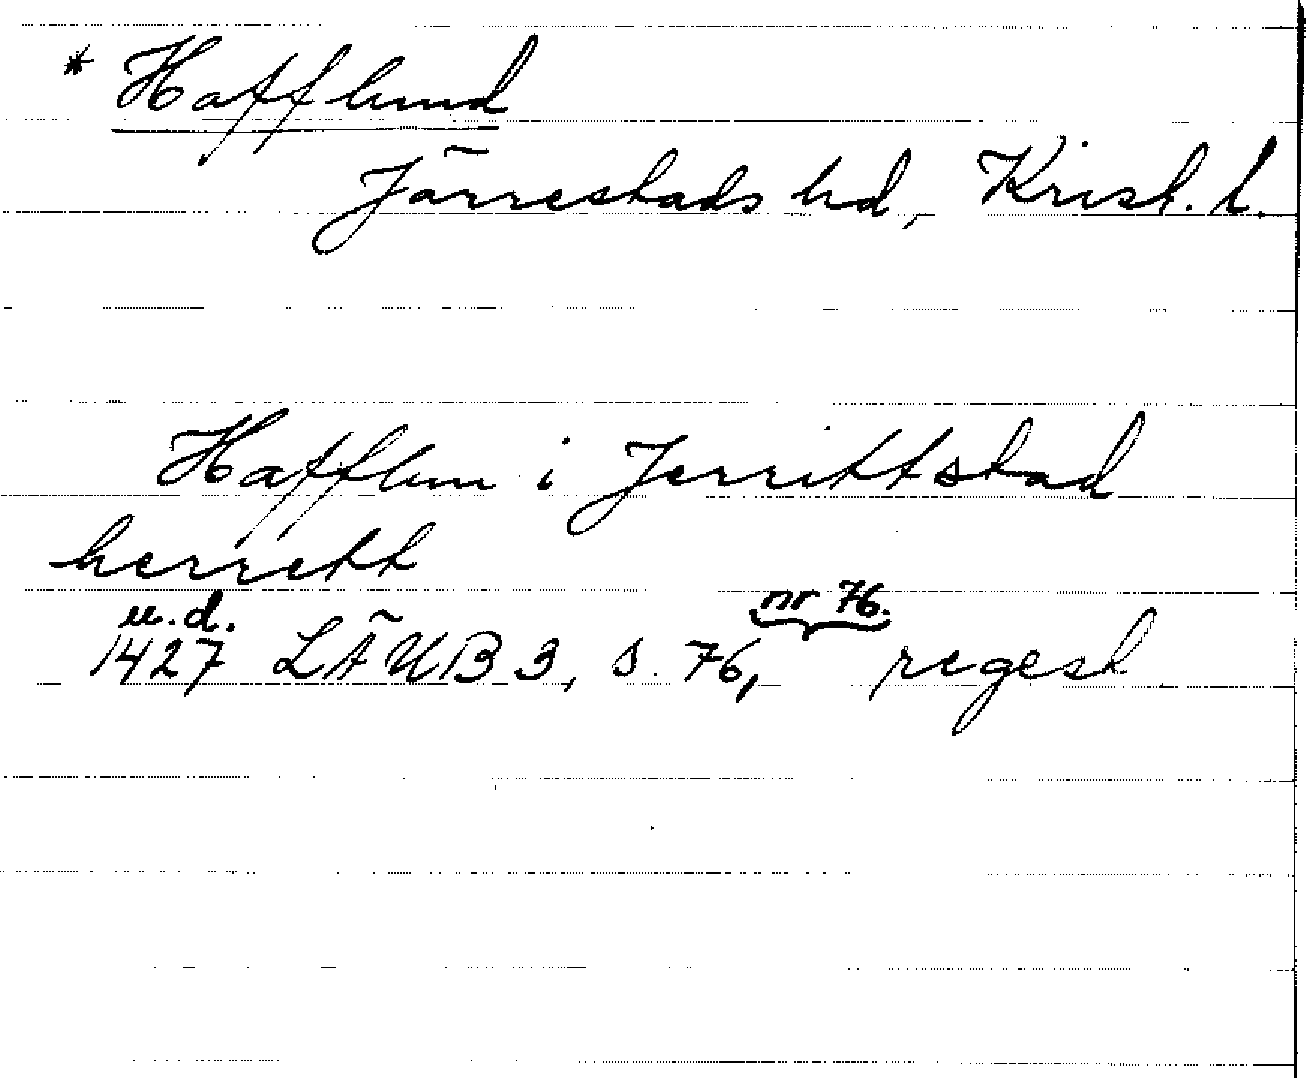 * Hafflund
Järrestads hd, Krist. l.
Hafflun i Jerrittstad
herrett
u.d.
nr 76.
1427 LÄUB 3, s. 76, regest